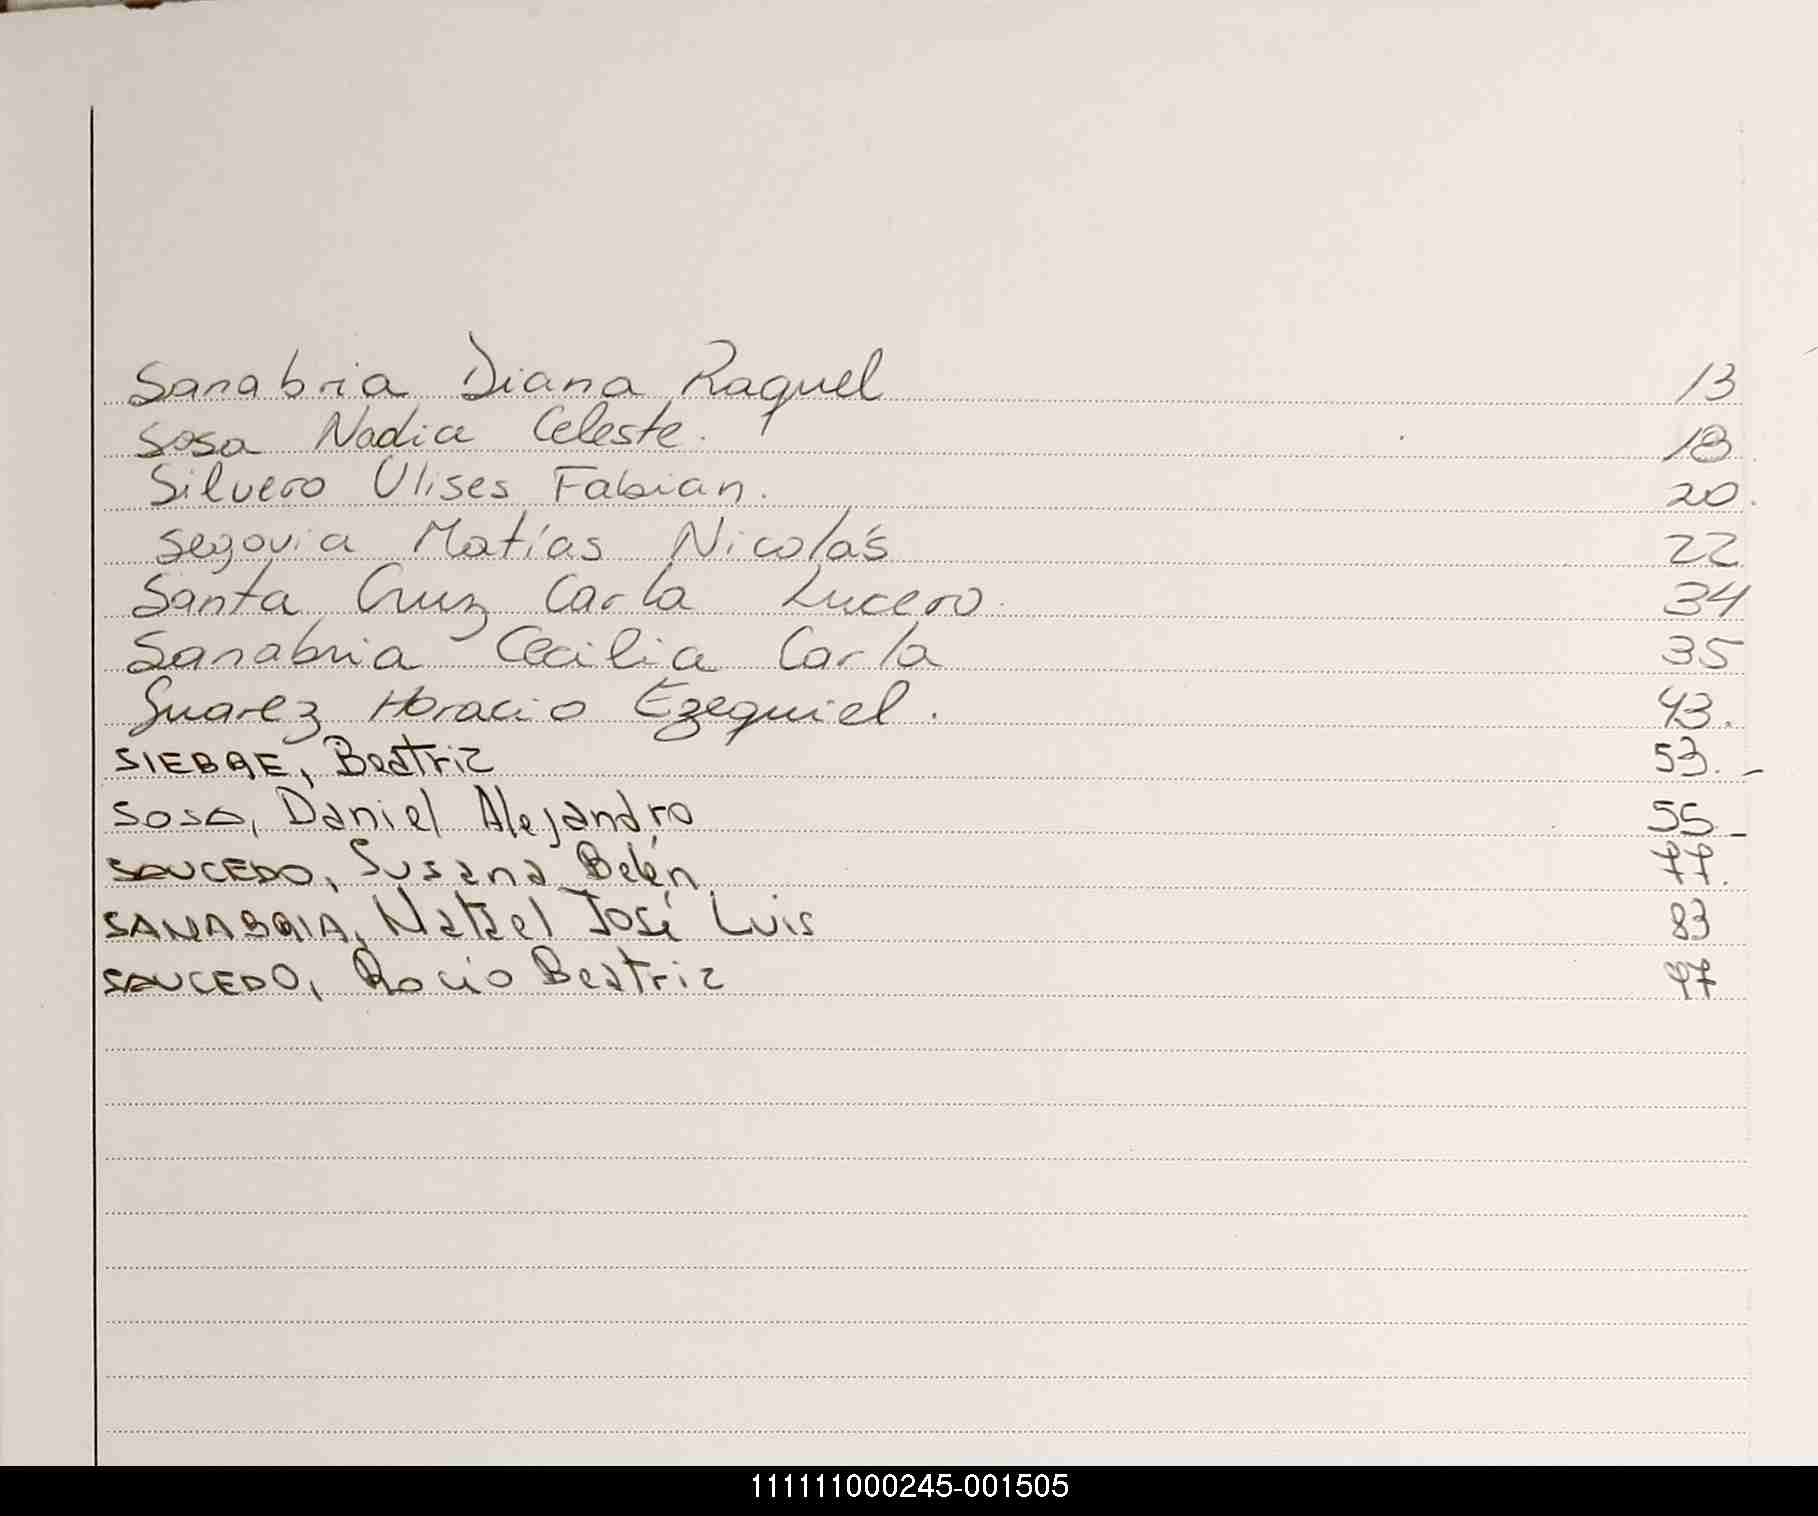 Sanabria Diana Raquel 13
Sosa Nadia Celeste. 18
Silvero Ulises Fabian. 20.
Segovia Matías Nicolás 22
Santa Cruz Carla Lucero. 34
Sanabria Cecilia Carla 35
Suarez Horacio Ezequiel. 43.
SIEBRE, Beatriz 53.-
SOSA, Daniel Alejandro 55.-
SAUCEDO, Susana Belén. 77.
SANABRIA, Natael José Luis 83
SAUCEDO, Rocio Beatriz 97
111111000245-001505